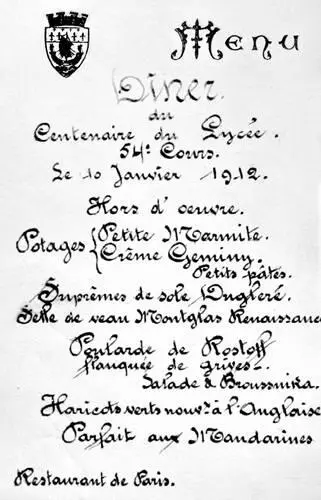 Menu
Dîner
du
Centenaire du Lycée.
54e Cours.
Le 10 Janvier 1912.
Hors d'œuvre.
Potages { Petite Marmite.
Crême Geminy.
Petits pâtés.
Suprèmes de sole Dugleré.
Selle de veau Montglas Renaissance
Poularde de Rostoff
flanquée de grives.
Salade à Broussnika.
Haricots verts nouvx à l'Anglaise
Parfait aux Mandarines
Restaurant de Paris.